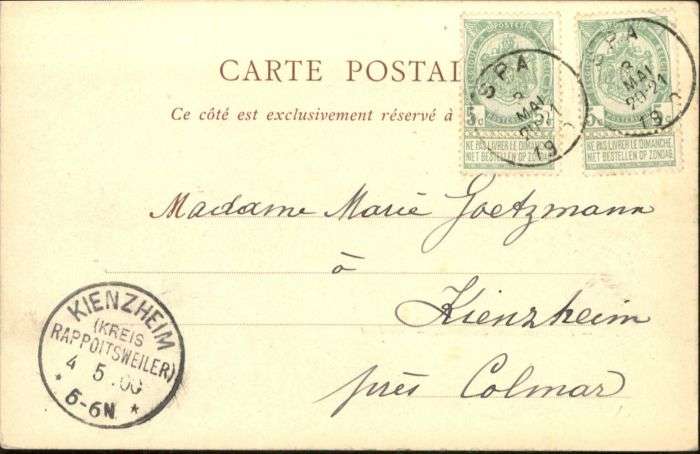 CARTE POSTAL
Ce côté est exclusivement réservé à
POSTES
5c
NE PAS LIVRER LE DIMANCHE
NIET BESTELLEN OP ZONDAG
5c
NE PAS LIVRER LE DIMANCHE
NIET BESTELLEN OP ZONDAG
SPA
3
MAI
20-21
19
SPA
3
MAI
20-21
19
Madame Marie Goetzmann
à
Kienzheim
près Colmar
KIENZHEIM
(KREIS
RAPPOITSWEILER)
4 5 .00
* 5-6N *